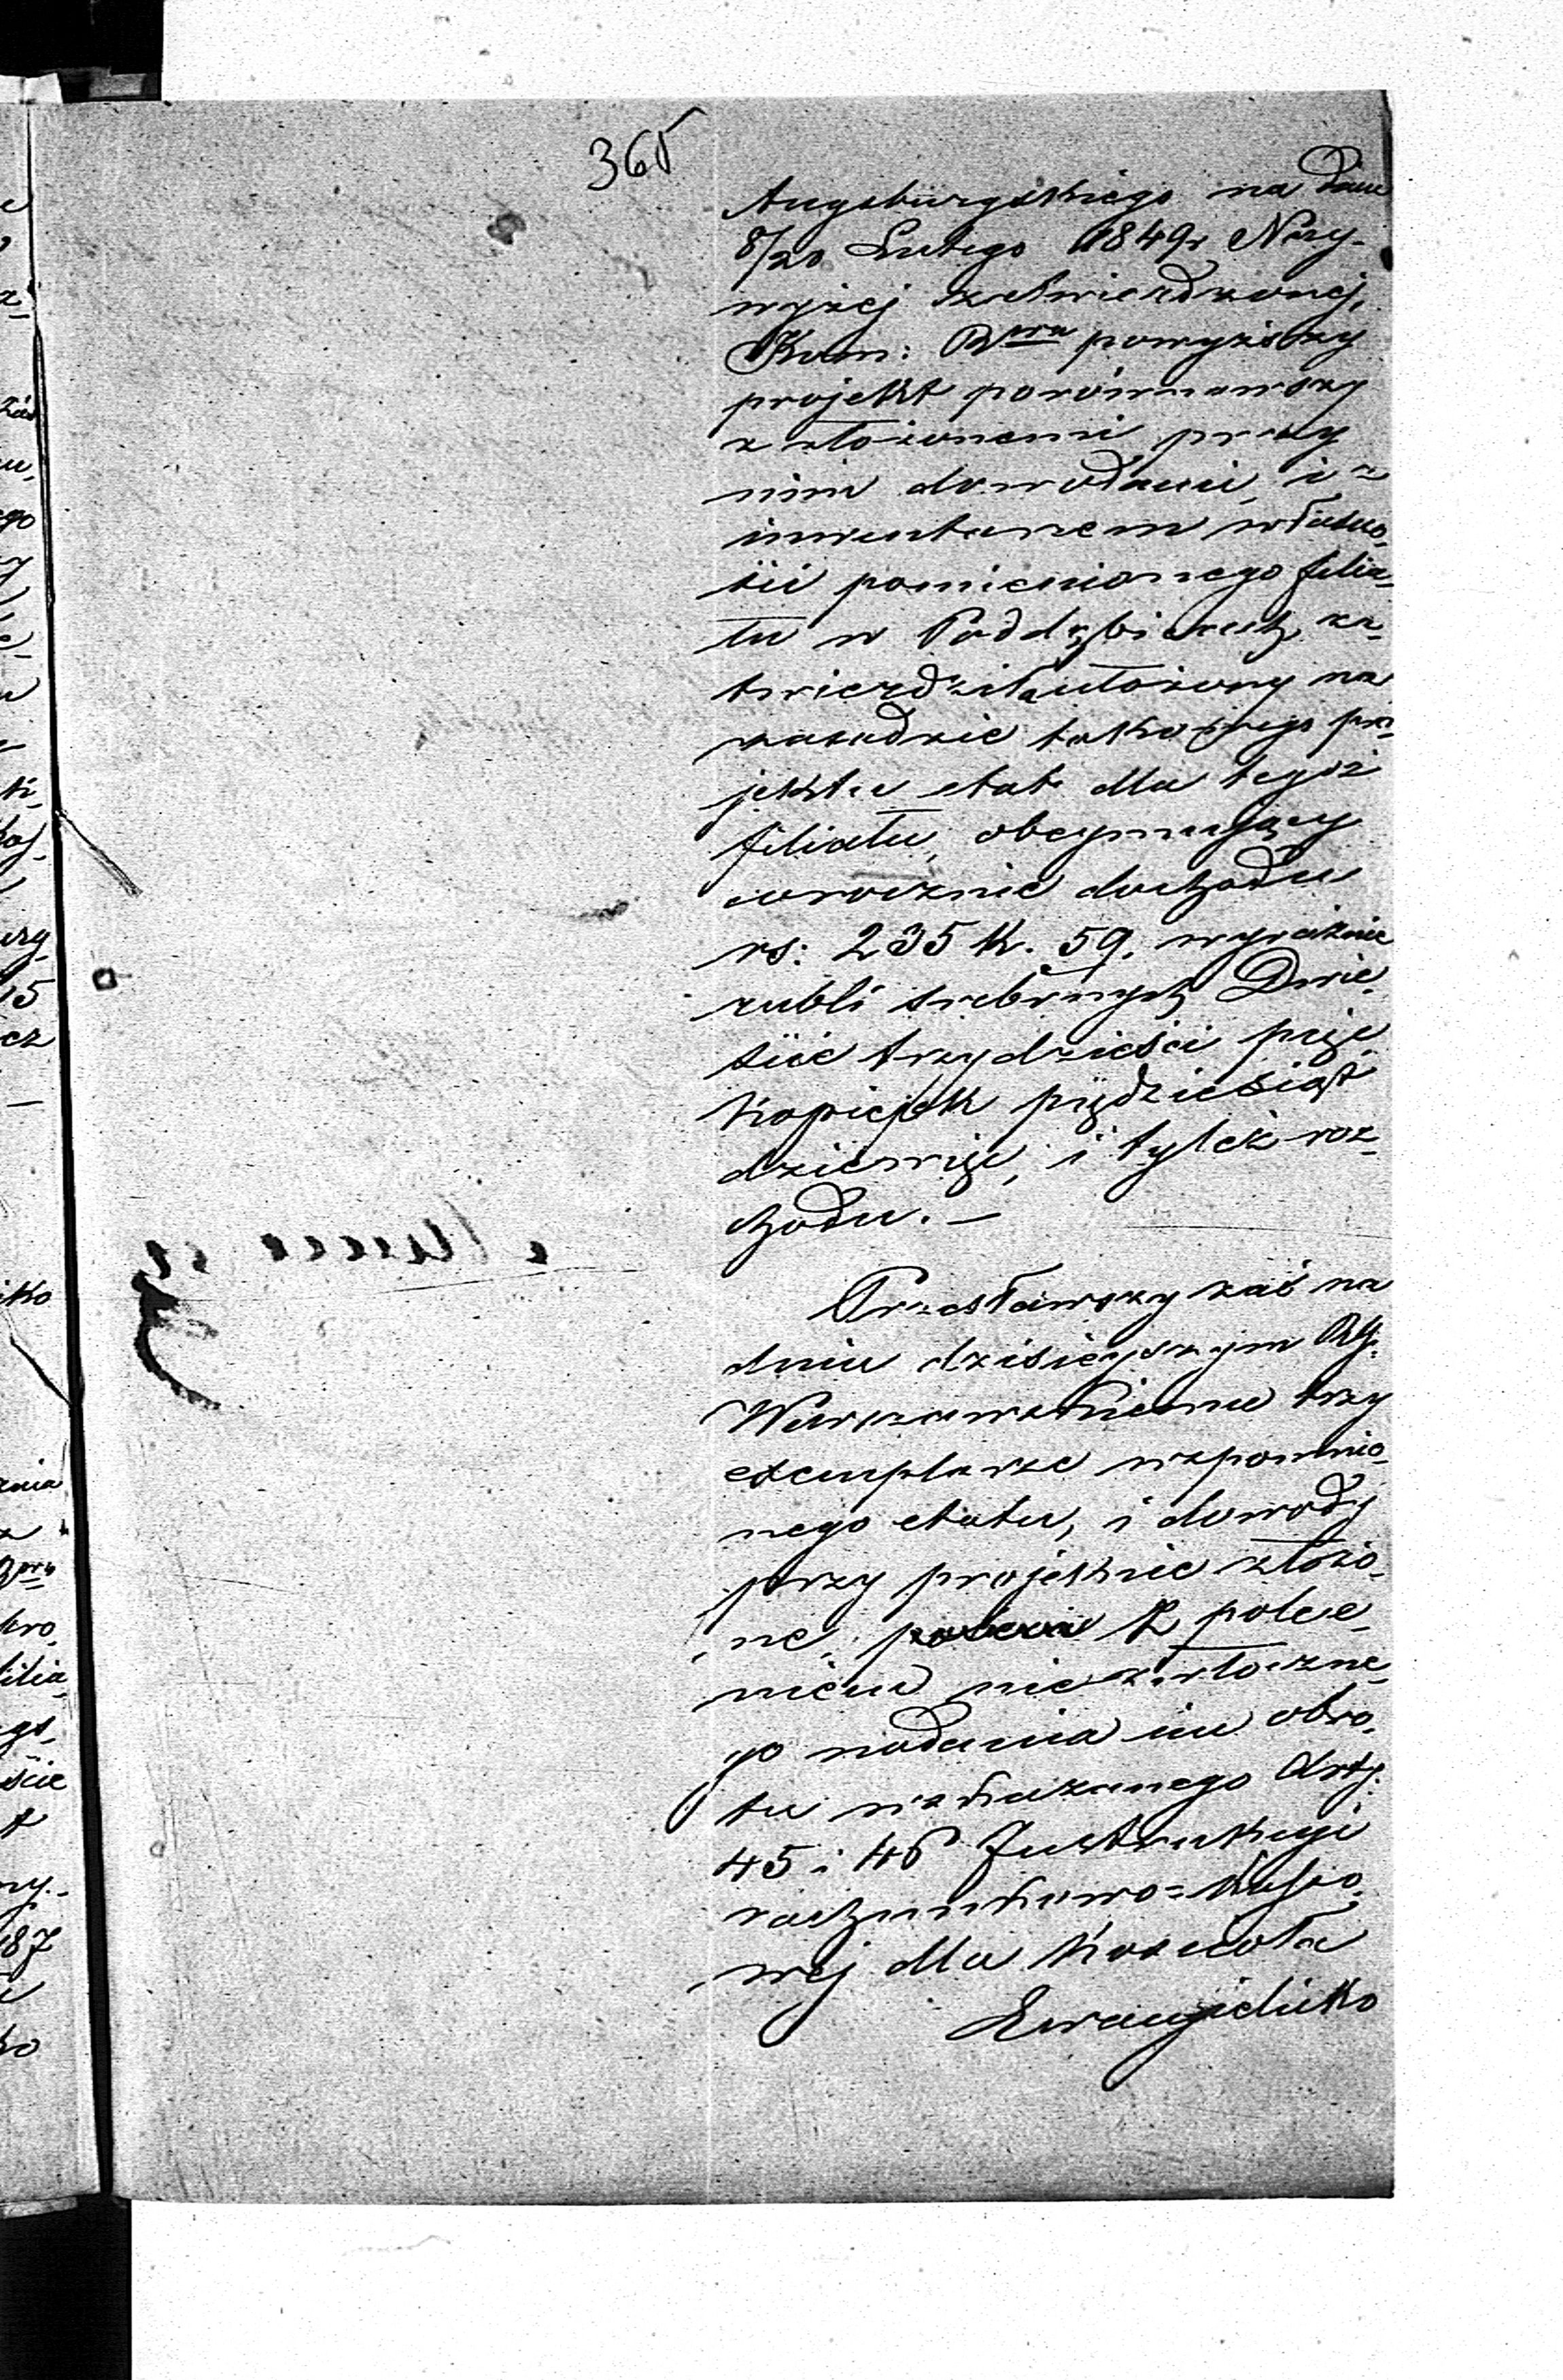 365
Augsburgskiego na dniu
8/20 Lutego 1849 r Nay-
wyżej zatwierdzonej,
Kom: Rwa powyższy
projekt porównawszy
z złożonemi przy
nim dowodami, i z
inwentarzem własno-
ści pomienionego filia-
łu w Poddębicach, za-
twierdziła ułożony na
zasadzie takowego pro-
jektu etat dla tegoż
filiału, obeymujący
corocznie dochodu
rs: 235 k. 59. wyraźnie
rubli srebrnych Dwie-
ście trzydzieści pięć
kopiejek pięćdziesiąt
dziewięć, i tyleż roz-
chodu. —
Przesławszy zaś na
dniu dzisieyszym RG.
Warszawskiemu trzy
exemplarze wspomnio-
nego etatu, i dowody
przy projekcie złożo-
ne, z polece-
niem niezwłoczne-
go nadania im obro-
tu wskazanego Arty.
45 i 46 Instrukcyi
rachunkowo-kasso-
wej dla Kościoła
Ewangielicko